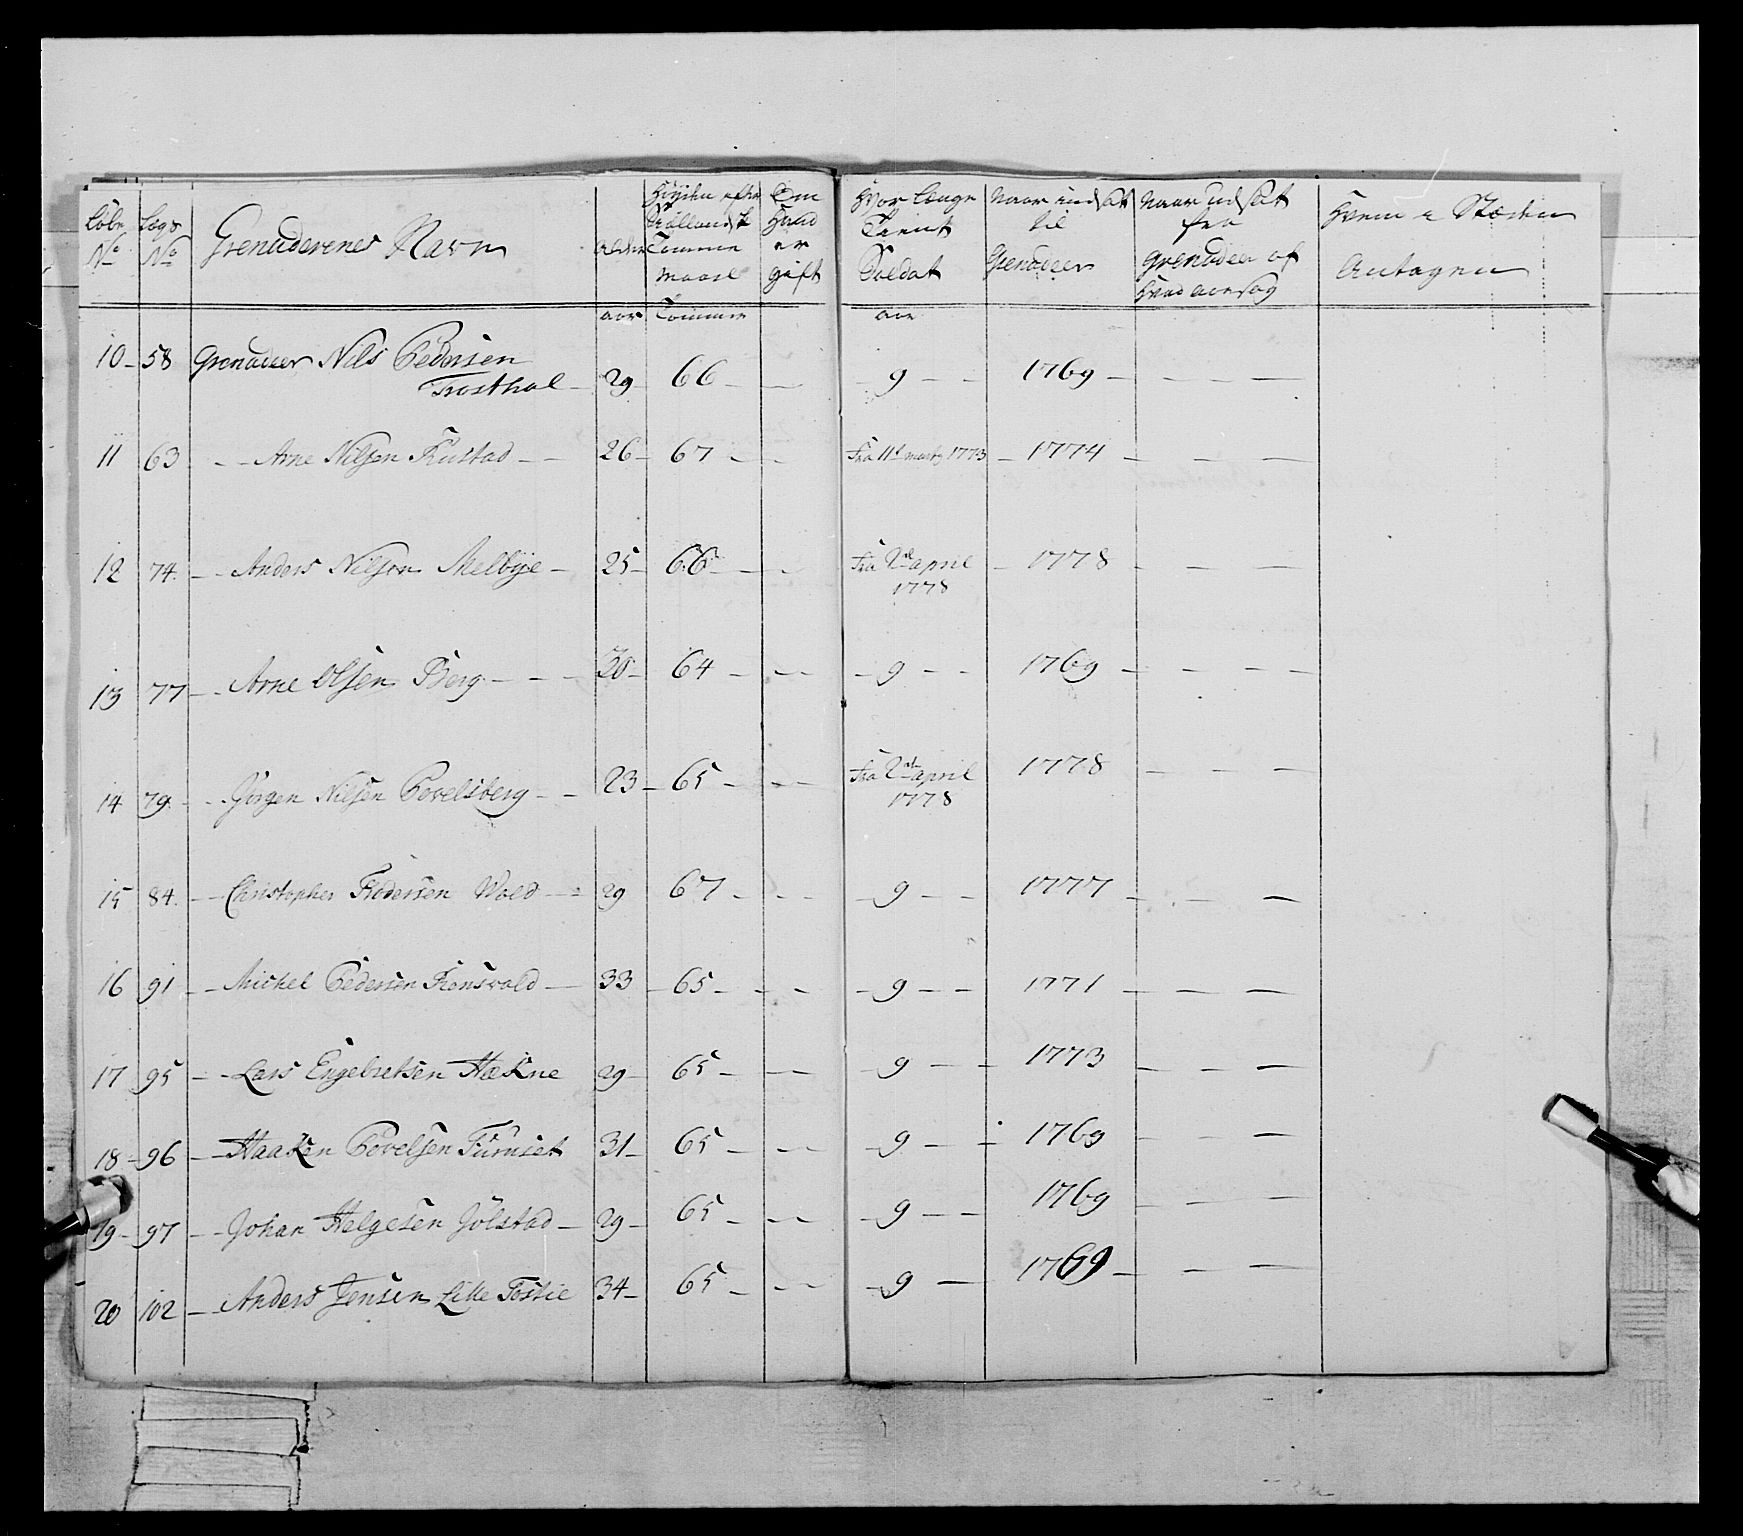 Løbe No | Lægs No | Grenaderenes Navn | Alder | Høyden efter Siællandsk Tomme Maael | Om Hand er gift | Hvor længe Tient Soldat | Naar indsat til Grenadeer | Naar udsat fra Grenadeer af hvad aarsag | Hvem i Stæden Antagen
aar | Tomme | aar
10 - 58 Grenadeer Nils Pedersen
Trosthol - 29 66 - - 9 - - 1769 - - - -
11 63 - - Arne Nilsen Kustad - - 26 - 67 - - Fra 11te marty 1773 - 1774 - - -
12 74. - - Anders Nilsen Melbye - 25 - 66 - - Fra 2de april 1778 - 1778 - - -
13 77 - - Arne Olsen Berg - - - 30 - 64 - - - - 9 - - 1769 - - - -
14 79. - - Jörgen Nilsen Povelsberg - - 23 - 65 - - - Fra 2de april 1778 1778 - - -
15 84. - - Christopher Pedersen Wold - - 29 67 - - - - 9 - - 1777 - - -
16 91 - - Michel Pedersen Tionsvold - 33 - 65 - - - - 9 - - 1771 - - -
17 95 - - Lars Engebretsen Hækne 29 - 65 - - - 9 - - 1773 - - -
18 - 96 - - Haaken Povelsen Furuset 31 - 65 - - - - 9 - - 1769 - - -
19 - 97 - - Johan Helgesen Jölstad - 29 - 65 - - - - 9 - - 1769 - - -
20 102 - - Anders Jensen Lille Tostie 34 - 65 - - - - 9 - 1769 - - -